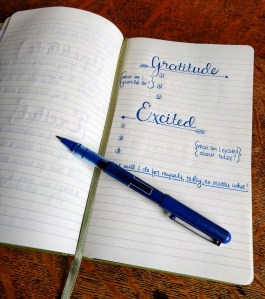 Gratitude
{what am I
grateful for}
1
2
3
Excited
{what am I excited
about today?}
What will I do for myself, today, no matter what?